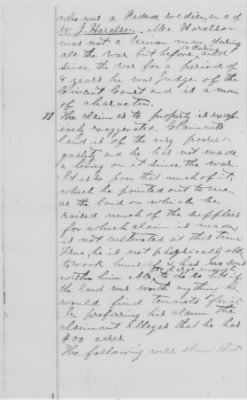 who was a Federal soldier, and of
W. J. Haralson. Mr. Haralson
was not a Union man during
all the war but before & during
since the war for a period of
8 years he was Judge of the
Circuit Court and is a man
of character.
The claim as to property is exces-
sively exaggerated. Claimants
land is of the very poorest
quality and he has not made
a living on it since the war.
It is so poor that much of it,
which he pointed out to me
as the land on which he
raised much of the supplies
for which claim is made,
is not cultivated at this time
True, he is not physically able
to work himself & has no sons
with him able to do so but if
the land was worth anything he
would find tenants for it.
In preferring his claim the
claimant alleges that he has
400 acres.
The following will show that